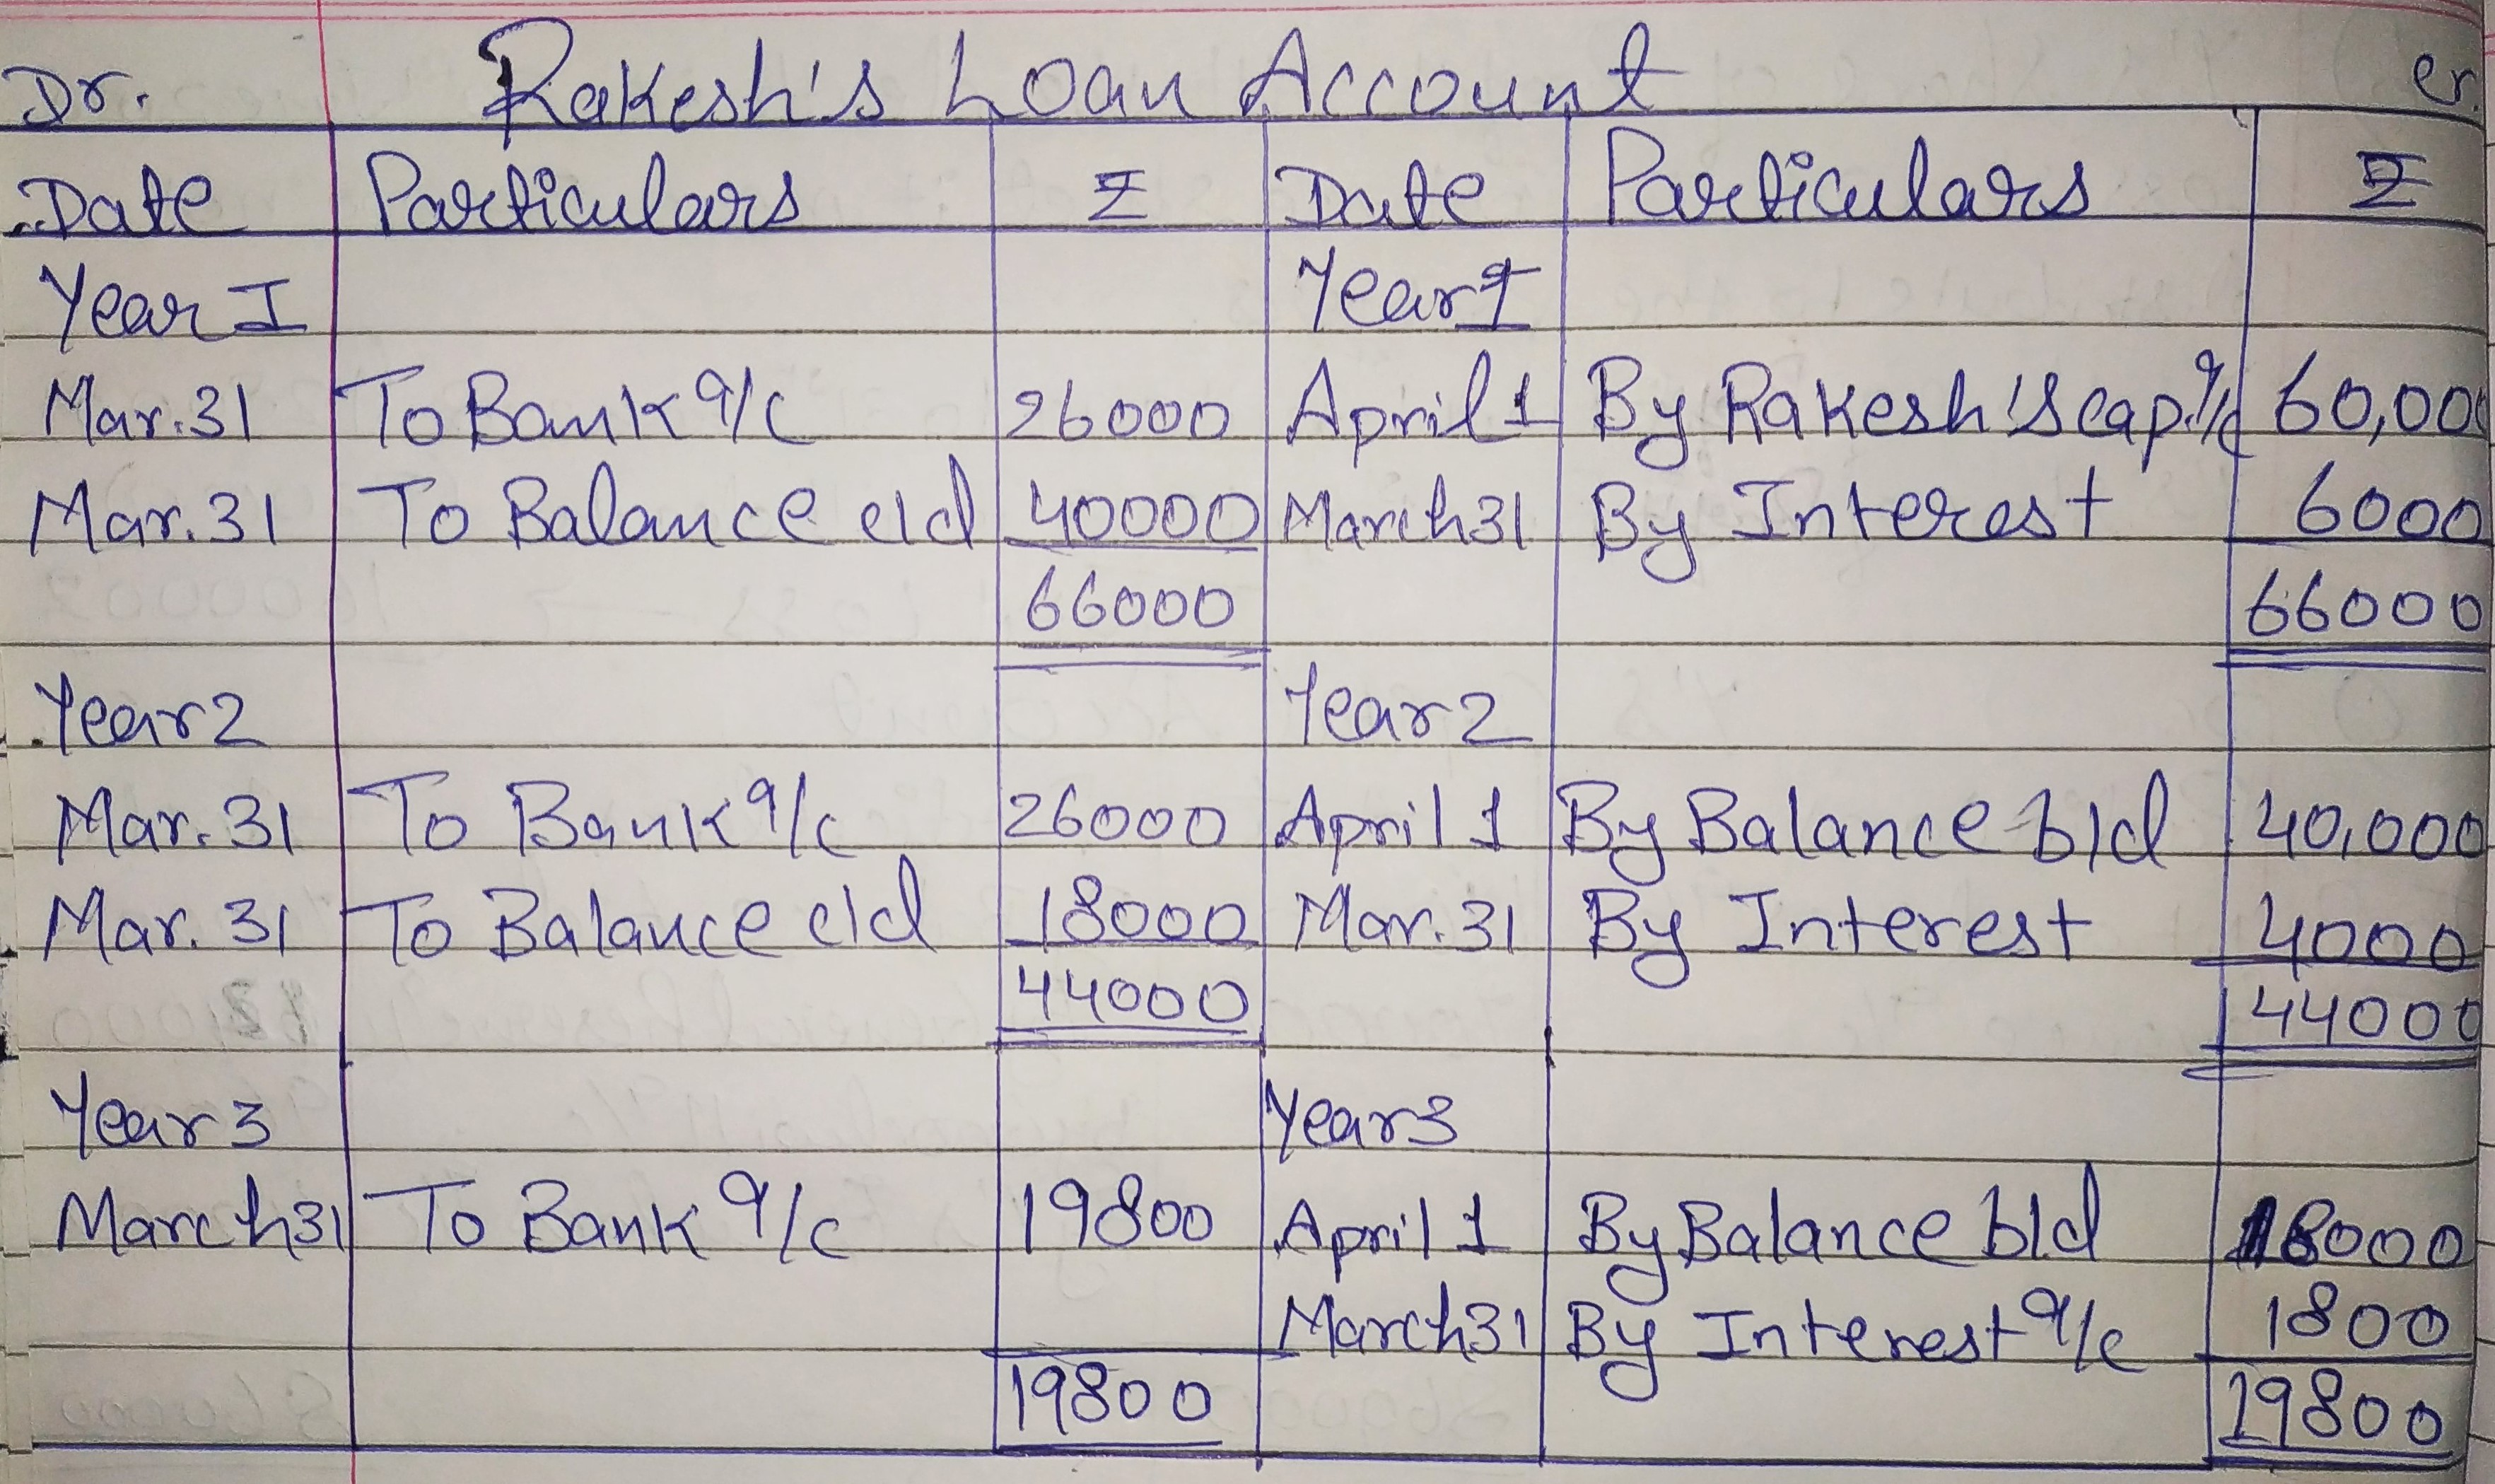 Dr. Rakesh's Loan Account Cr.
Date Particulars ₹ Date Particulars ₹
Year I Year I
Mar. 31 To Bank a/c 26000 April 1 By Rakesh's cap. a/c 60,000
Mar. 31 To Balance c/d 40000 March 31 By Interest 6000
66000 66000
Year 2 Year 2
Mar. 31 To Bank a/c 26000 April 1 By Balance b/d 40,000
Mar. 31 To Balance c/d 18000 Mar. 31 By Interest 4000
44000 44000
Year 3 Year 3
March 31 To Bank a/c 19800 April 1 By Balance b/d 18000
March 31 By Interest a/c 1800
19800 19800